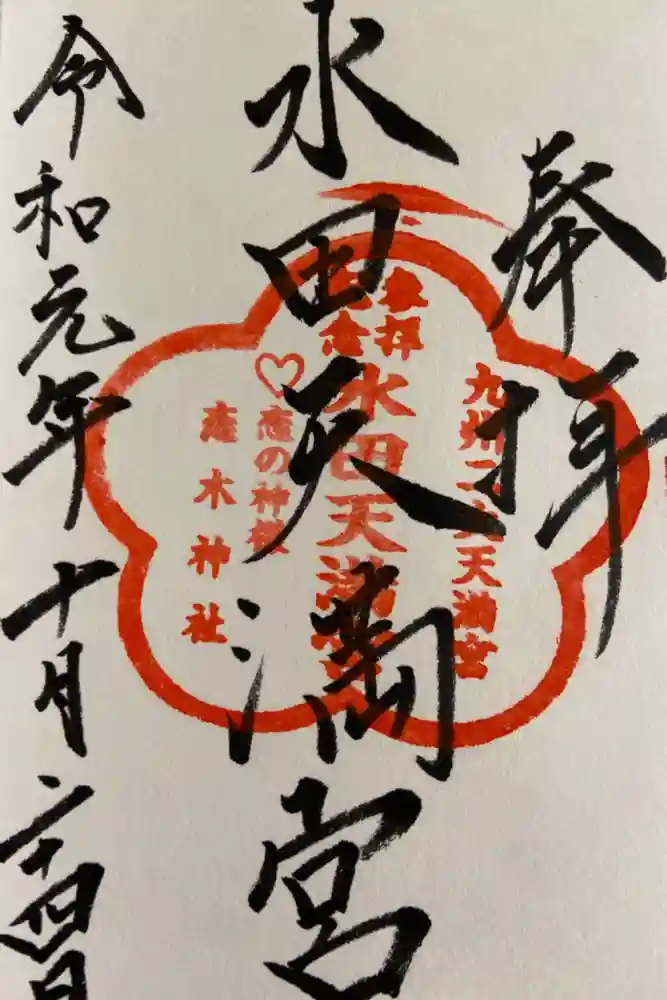 奉拝
九州二大天満宮
参拝
記念
水田天満宮
水田天満宮
♡恋の神様
恋木神社
令和元年十月二十四日